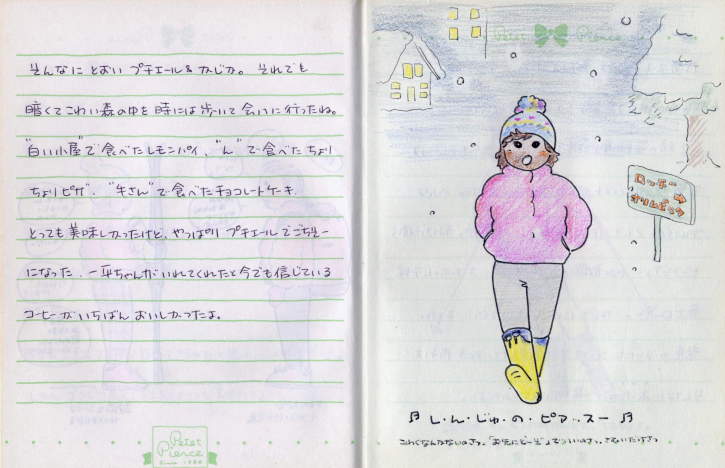 そんなに とおい プチエール&かじか。 それでも
暗くてこわい森の中を 時には歩いて 会いに行ったね。
"白い小屋"で食べたレモンパイ、"ん"で食べた ちょり
ちょりピザ、"牛さん"で食べたチョコレートケーキ、
とっても美味しかったけど、やっぱり プチエールでごちそー
になった、一平ちゃんがいれてくれたと今でも信じている
コーヒーがいちばん おいしかったよ。
Petet Pierce
Petet Pierce
ロッヂ→
オリムピック
♬ し・ん・じゅ・の・ピアッスー ♬
こわくなんかないのさっ。